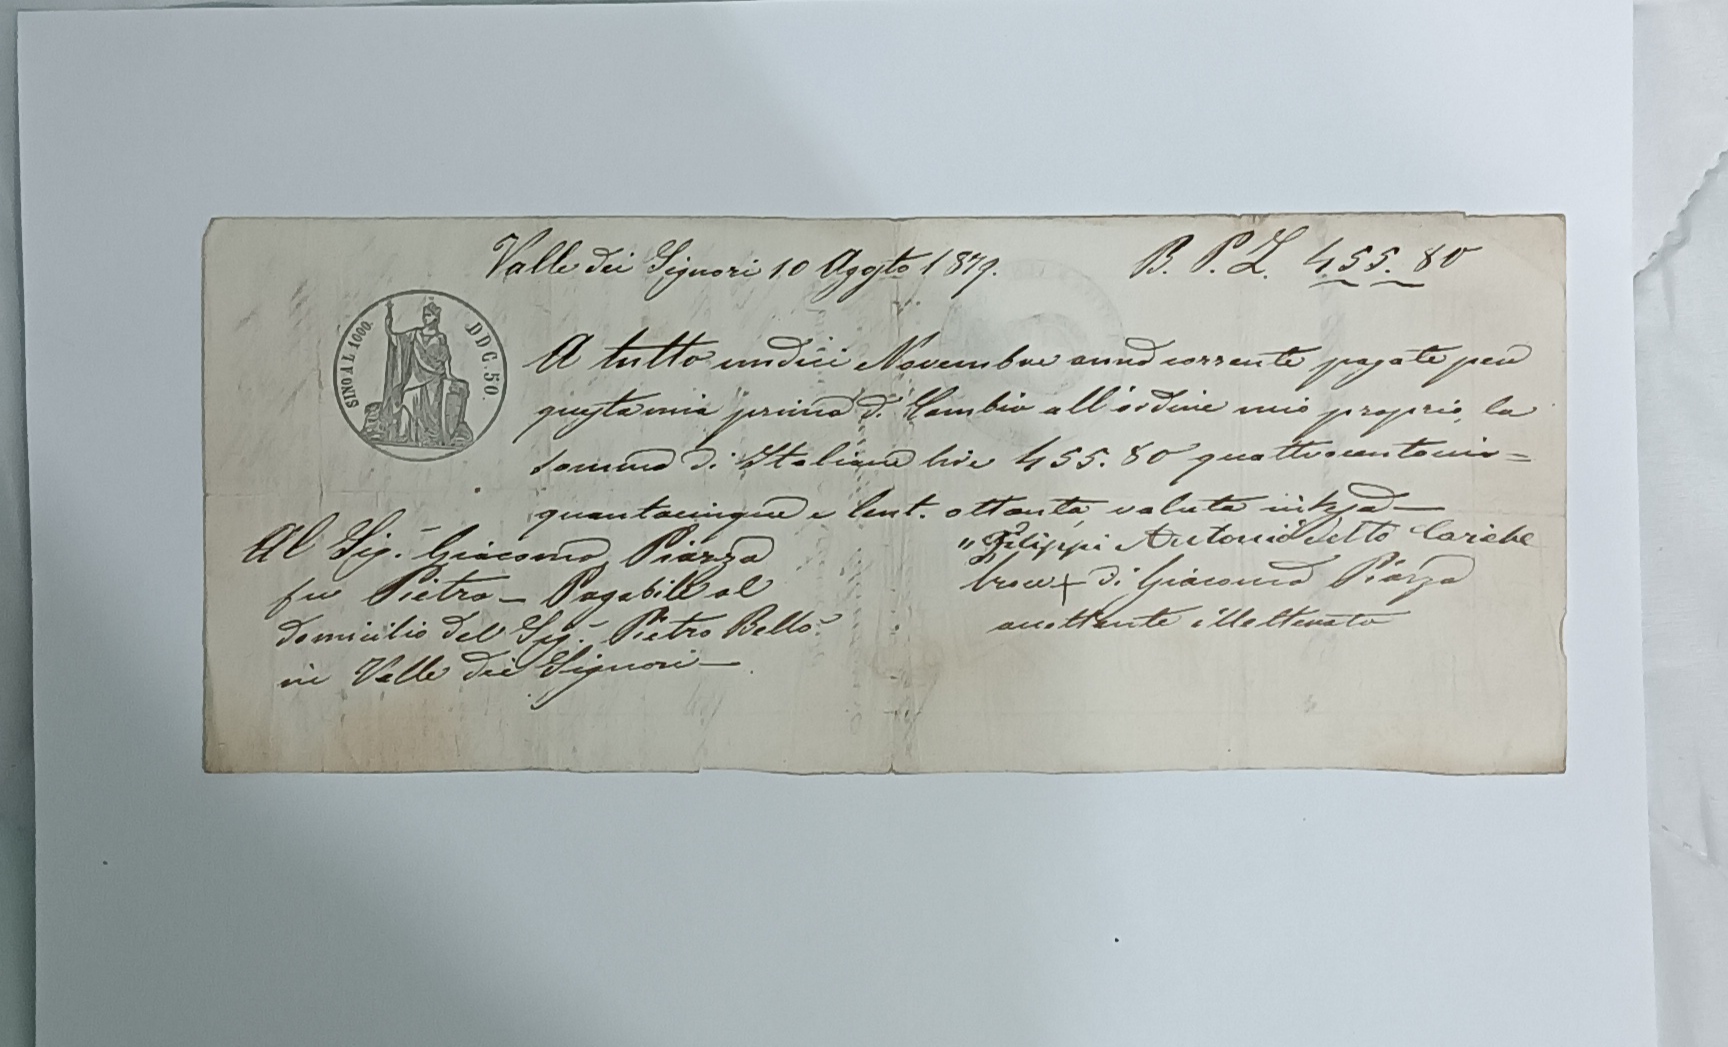 Valle dei Signori 10 Agosto 1879.
B. P. L. 455. 80
SINO A L 1000.
D D C. 50.
A tutto undici Novembre anno corrente pagate per
questa mia prima di Cambio all'ordine mio proprio, la
somma di Italiane lire 455. 80 quattrocentocin=
quantacinque e Cent. ottanta, valuta intesa —
Al Sig.r Giacomo Piazza
fu Pietro — Pagabile al
domicilio del Sig.r Pietro Bello
in Valle dei Signori —
" Filippi Antonio detto
Croce + di Giacomo Piazza
accettante illetterato